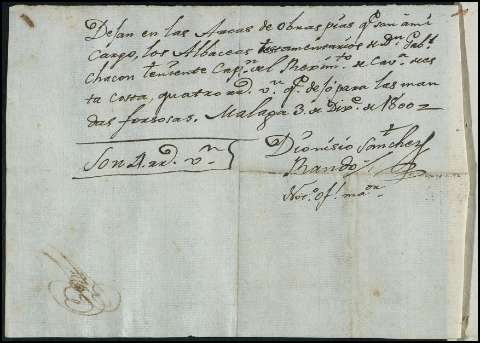 Dejan en las Arcas de obras pias qe. son à mi
cargo, los Albaceas testamentarios de Dn. Gabl.
chacon teniente Capn. del Regimto. de Cava. de es
ta costa, quatro rrs. vn. qe. dejó para las man
das forsosas. Malaga 3. de Dixe. de 1800 2
Dionisio Sanchez
Son 4 rrs. vn.
Rando
Noto. ofl. maor.